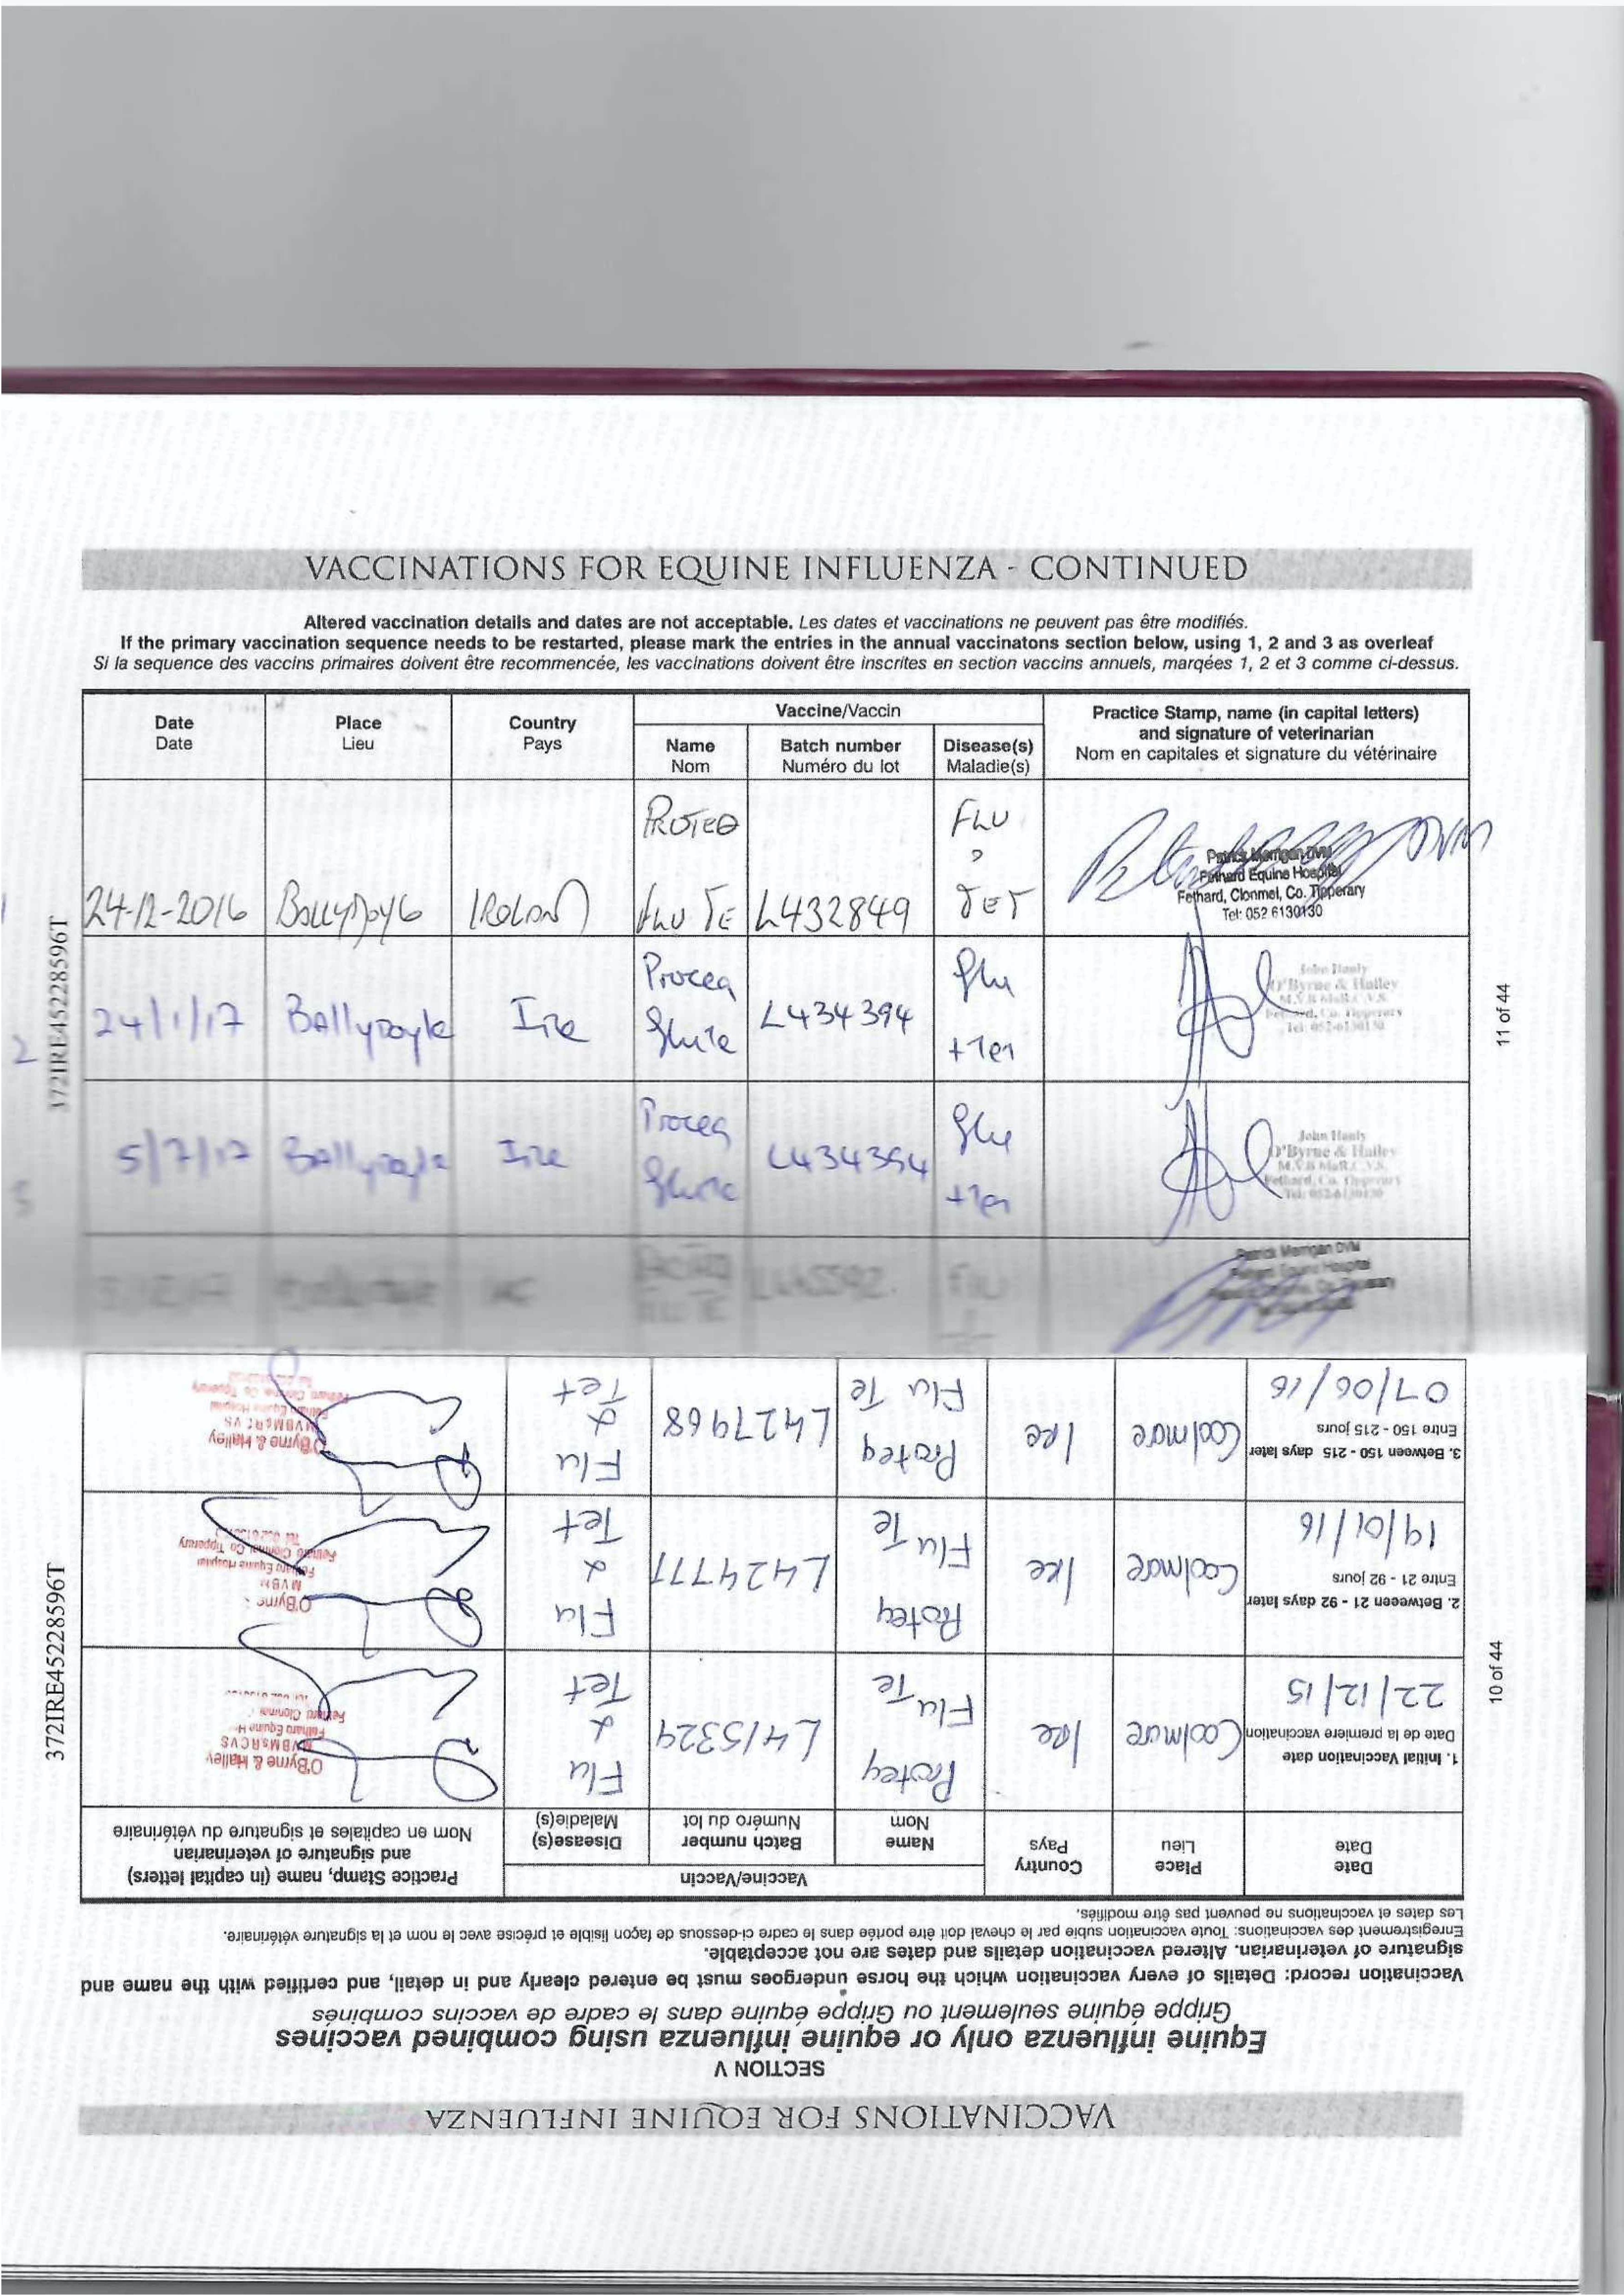 VACCINATIONS FOR EQUINE INFLUENZA - CONTINUED
Altered vaccination details and dates are not acceptable. Les dates et vaccinations ne peuvent pas être modifiés.
If the primary vaccination sequence needs to be restarted, please mark the entries in the annual vaccinatons section below, using 1, 2 and 3 as overleaf
Si la sequence des vaccins primaires doivent être recommencée, les vaccinations doivent être inscrites en section vaccins annuels, marqées 1, 2 et 3 comme ci-dessus.
Date Place Country Vaccine/Vaccin Practice Stamp, name (in capital letters)
Date Lieu Pays and signature of veterinarian
Name Batch number Disease(s) Nom en capitales et signature du vétérinaire
Nom Numéro du lot Maladie(s)
24-12-2016 FLU TE L432849 FLU TET
Patrick Merrigan DVM
Fethard Equine Hospital
Fethard, Clonmel, Co. Tipperary
Tel: 052 6130130
2 24/1/17 Ballydoyle Ire L434394 Flu
John Hanly
O'Byrne & Halley
M.V.B M.R.C.V.S.
Fethard, Co. Tipperary
Tel: 052-6130130
5/7/17 Ballydoyle Ire L434394 Flu
John Hanly
O'Byrne & Halley
M.V.B M.R.C.V.S.
Fethard, Co. Tipperary
Tel: 052-6130130
Patrick Merrigan DVM
Fethard Equine Hospital
372IRE45228596T
11 of 44
VACCINATIONS FOR EQUINE INFLUENZA
SECTION V
Equine influenza only or equine influenza using combined vaccines
Grippe équine seulement ou Grippe équine dans le cadre de vaccins combinés
Vaccination record: Details of every vaccination which the horse undergoes must be entered clearly and in detail, and certified with the name and
signature of veterinarian. Altered vaccination details and dates are not acceptable.
Enregistrement des vaccinations: Toute vaccination subie par le cheval doit être portée dans le cadre ci-dessous de façon lisible et précise avec le nom et la signature vétérinaire.
Les dates et vaccinations ne peuvent pas être modifiés.
Date Place Country Vaccine/Vaccin Practice Stamp, name (in capital letters)
Date Lieu Pays and signature of veterinarian
Name Batch number Disease(s) Nom en capitales et signature du vétérinaire
Nom Numéro du lot Maladie(s)
1. Initial Vaccination date
Date de la premiere vaccination
22/12/15 Coolmore Ire Proteq Flu Te L415329 Flu & Tet
O'Byrne & Halley
MVBMsRCVS
2. Betweeen 21 - 92 days later
Entre 21 - 92 jours
19/01/16 Coolmore Ire Proteq Flu Te L424777 Flu & Tet
O'Byrne
Fethard Equine Hospital
Fethard Clonmel Co Tipperary
3. Between 150 - 215 days later
Entre 150 - 215 jours
07/06/16 Coolmore Ire Proteq Flu Te L427968 Flu & Tet
O'Byrne & Halley
MVBMsRCVS
Fethard Equine Hospital
Fethard Clonmel Co Tipperary
372IRE45228596T
10 of 44